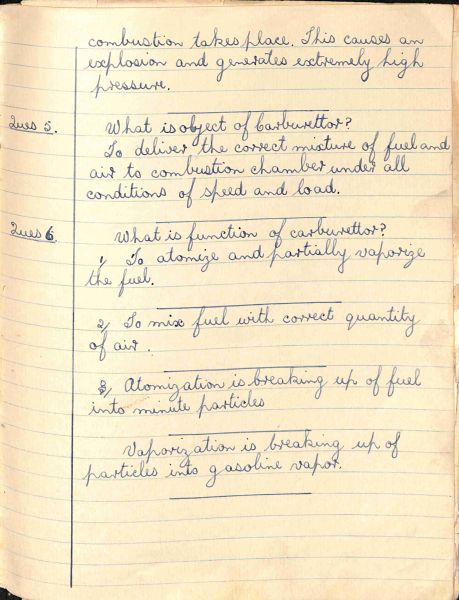 combustion takes place. This causes an
explosion and generates extremely high
pressure.
Ques 5. What is object of Carburettor?
To deliver the correct mixture of fuel and
air to combustion chamber under all
conditions of speed and load.
Ques 6. What is function of carburettor?
1, To atomize and partially vaporize
the fuel.
2, To mix fuel with correct quantity
of air.
3, Atomization is breaking up of fuel
into minute particles
Vaporization is breaking up of
particles into gasoline vapor.